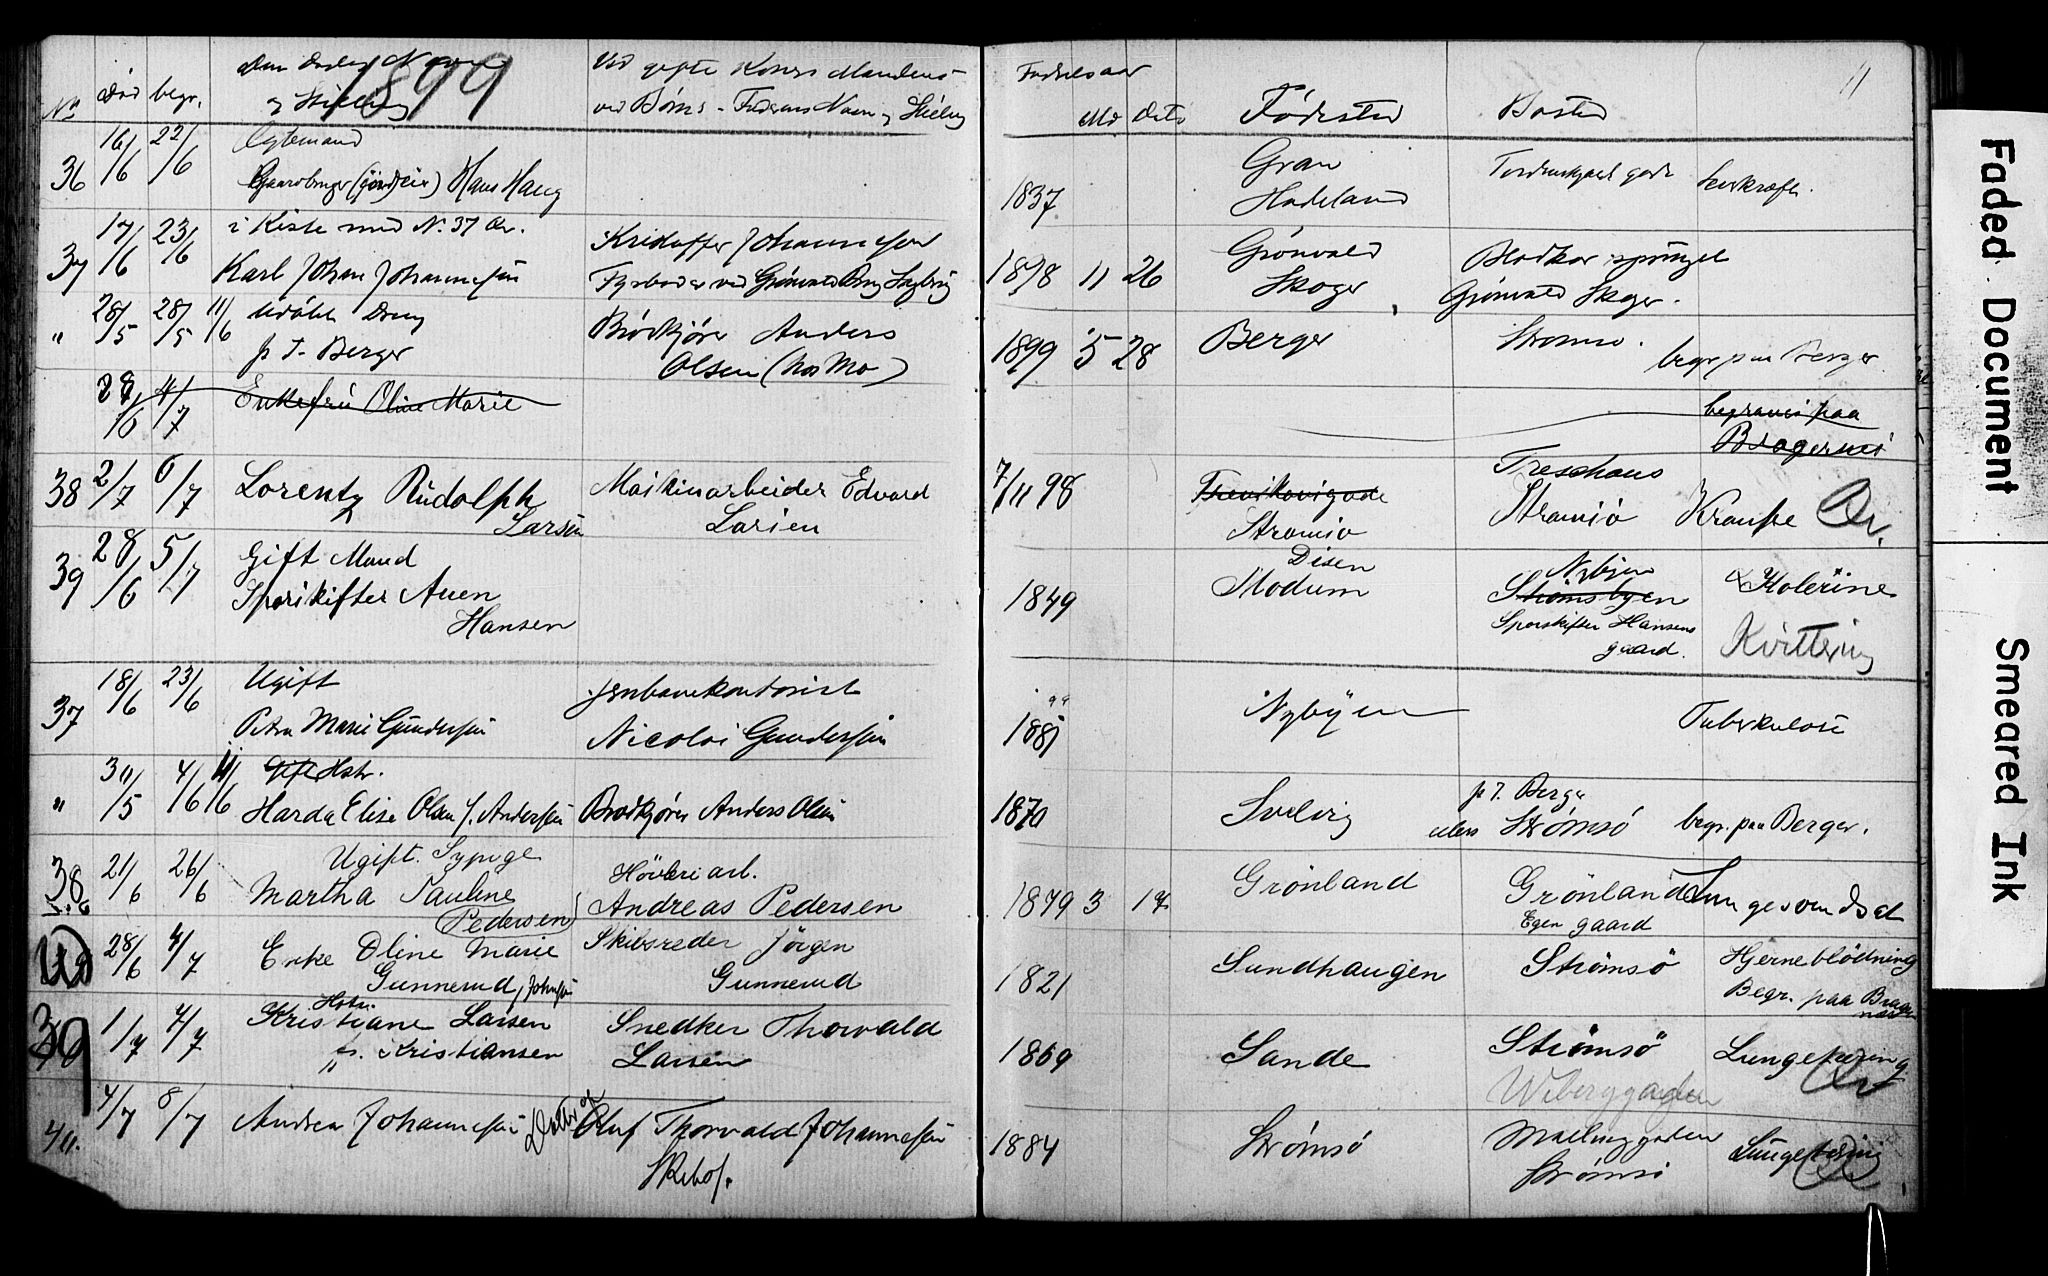 1899
No Død begr. Den Dødes Navn og Stilling
Ved gifte Koner Mandens
ved Børns - Faderens Navn og Stilling
Fødselsaar
Md Dato Fødested Bosted
11
36 16/6 22/6 Egtemand
Gaardbruger Hans Haug
1837 Gran
Hadeland
37 17/6 23/6 i Kiste med N. 37
Karl Johan Johannesen
Kristoffer Johannesen
Fyrbøder ved Grønvold Brug
1898 11 26 Grønvold
Skoger
Grønvold Skoger.
" 28/5 28/5 11/6 Udøbt Dreng
p. t. Berger
Brødkjører Anders
Olsen (hos Mo)
1899 5 28 Berger
Strømsø.
begr. paa Berger
28/6 4/7 Enkefru Oline Marie
begraves paa
Bragernes
38 2/7 6/7 Lorentz Rudolph
Larsen
Maskinarbeider Edvard
Larsen
7/11 98
Strømsø
Strømsø Krampe
39 28/6 5/7 Gift Mand
Sporskifter Aven
Hansen
1849 Disen
Modum
Nybyen
Strømsbyen
Sporskifter Hansens
gaard.
Kolerine
Kvittering
37 18/6 23/6 Ugift
Petra Marie Gundersen
Jernbanekontorist
Nicolai Gundersen
1881 Nybyen
Tuberkulose
" 31/5 4/6 11/6 Gift Hstr.
Harda Elise Olsen f. Andersen
Brødkjører Anders Olsen
1870 Svelvig
p. t. Berger
ellers Strømsø begr. paa Berger.
38 21/6 26/6 Ugift. Sypige
Martha Pauline
Pedersen
Høvleriarb.
Andreas Pedersen
1879 3 17 Grønland
Grønland Lungesvindsot
Egen gaard
28/6 4/7 Enke Oline Marie
Gunnerud, Johnsen
Skibsreder Jørgen
Gunnerud
1821 Sundhaugen
Strømsø
Hjerneblødning
Begr. paa Brager
næs
39 1/7 4/7 Hstr.
Kristiane Larsen
f. Kristiansen
Snedker Thorvald
Larsen
1869 Sande
Strømsø Lungetæring
Weberggaden
40. 4/7 8/7 Andrea Johannesen Datter af
Oluf Thorvald Johannesen
Skibsf.
1884 Strømsø
Mællinggaden
Strømsø
Lungetæring
Faded Document
Smeared Ink